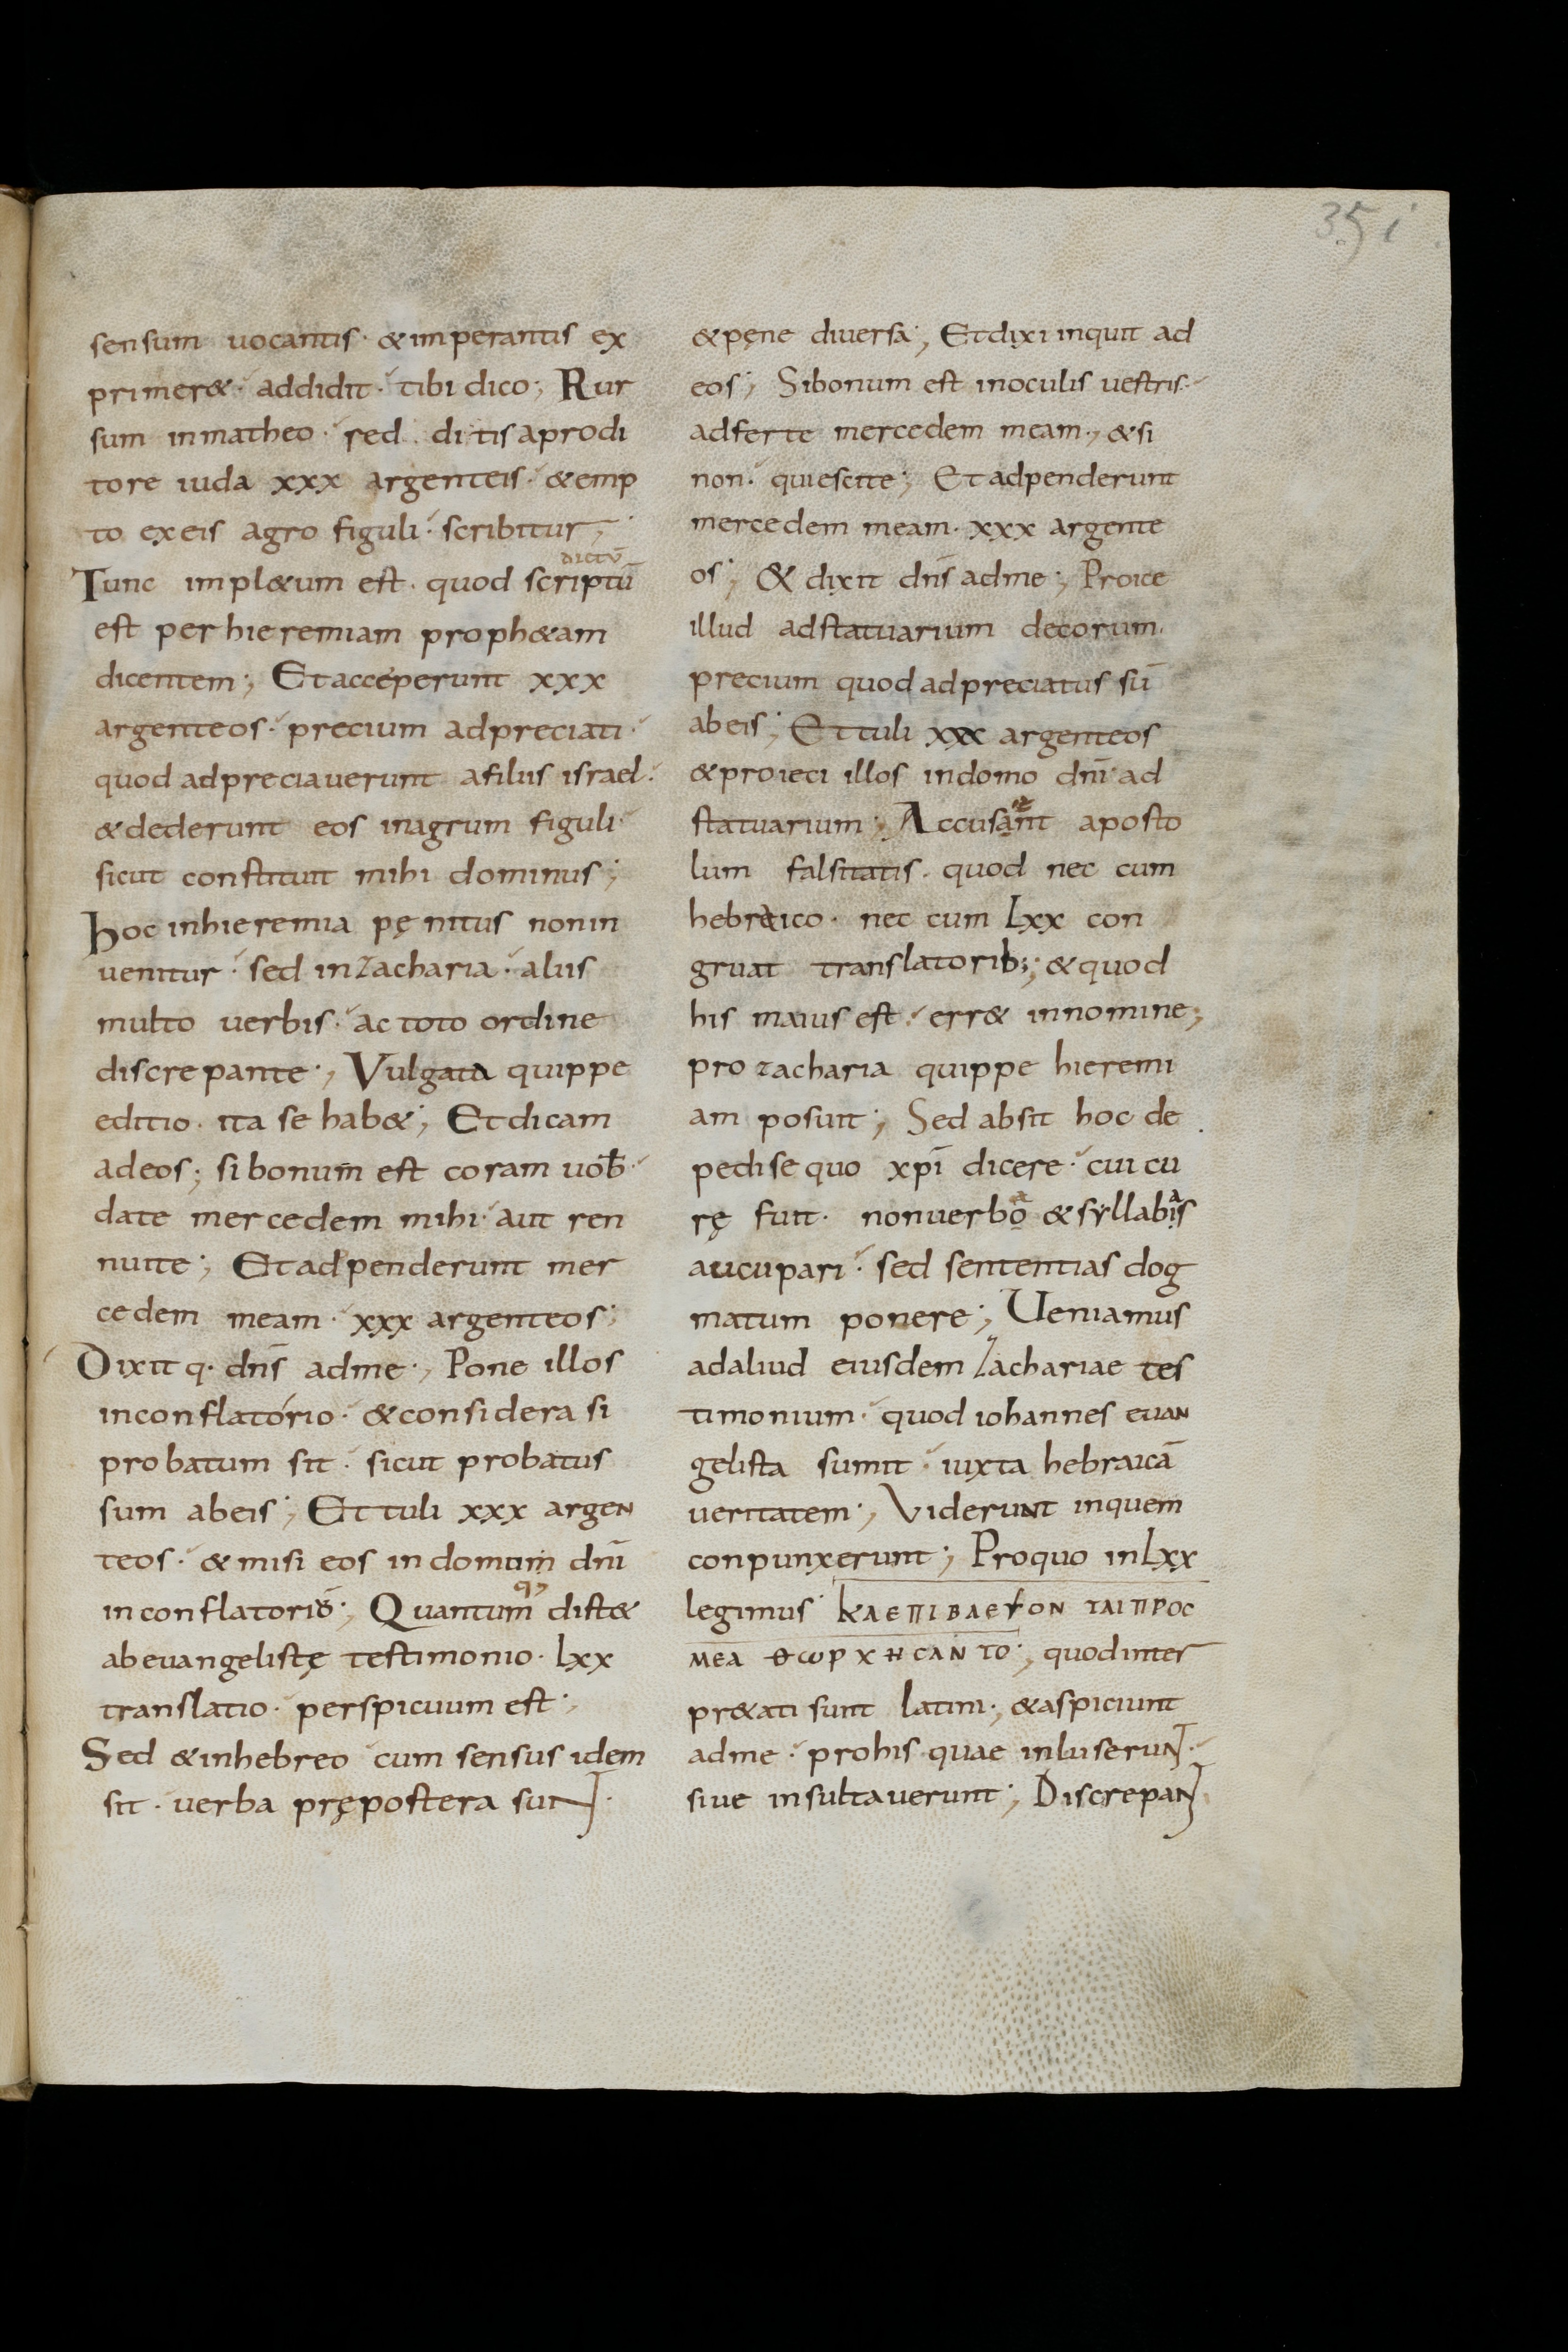 351
sensum uocantis· &imperantis ex
primer&· addidit· tibi dico; Rur
sum inmatheo· red ditis aprodi
tore iuda xxx argenteis· &emp
to exeis agro figuli· scribitur;
dictū
Tunc impl&um est· quod scriptū
est per hieremiam proph&am
dicentem; Et acceperunt xxx
argenteos· precium adpreciati·
quod adpreciauerunt afiliis israel·
&dederunt eos inagrum figuli·
sicut constituit mihi dominus;
Hoc inhieremia pęnitus nonin
uenitur· sed inzacharia· aliis
multo uerbis· ac toto ordine
discrepante; Vulgata quippe
editio· ita se hab&; Et dicam
adeos; si bonum est coram uob̄·
date mercedem mihi· aut ren
nuite; Et adpenderunt mer
cedem meam· xxx argenteos;
Dixit q· dn̄s adme; Pone illos
inconflatório· &considera si
probatum sit· sicut probatus
sum abeis; Et tuli xxx argen
teos· &misi eos in domum dn̄i
inconflatoriō; Quantumq; dist&
abeuangelistę testimonio· Lxx
translatio· perspicuum est;
Sed &inhebreo cum sensus idem
sit· uerba prępostera sunt·
&pęne diuersa; Et dixi inquit ad
eos; Sibonum est inoculis uestris·
adferte mercedem meam; &si
non· quiescite; Et adpenderunt
mercedem meam· xxx argente
os; & dixit dn̄s adme; Proice
illud adstatuarium decorum·
precium quod adpreciatus sū
abeis; Et tuli xxx argenteos
&proieci illos indomo dn̄i ad
statuarium; Accusant aposto
lum falsitatis· quod nec cum
hebraico· nec cum Lxx con
gruat translatorib;; &quod
his maius est· err& innomine;
pro zacharia quippe hieremi
am posuit; Sed absit hoc de
pedisequo xp̄i dicere· cui cu
rę fuit· nonuerbo &syllabis
aucupari· sed sententias dog
matum ponere; Ueniamus
adaliud eiusdem Zachariae tes
timonium· quod iohannes euan
gelista sumit· iuxta hebraicā
ueritatem; Viderunt inquem
conpunxerunt; Proquo inLxx
legimus ΚΑΕΠΙΒΛΕΨΟΝ ΤΑΙΠΡΟC
ΜΕΑ ΘωΡΧΗCΑΝΤΟ; quodinter
pr&ati sunt latini; &aspiciunt
adme· prohis quae inluserunt·
siue insultauerunt; Discrepant